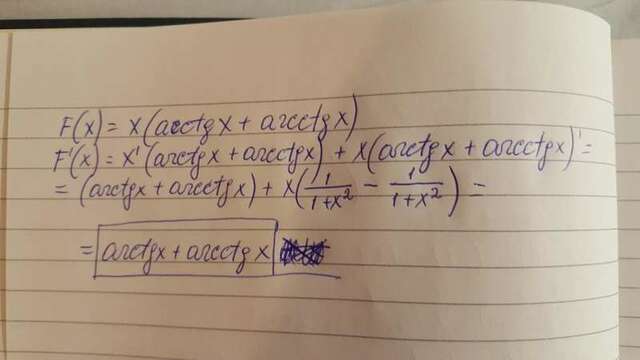 F(x) = x(arctgx + arcctgx)
F'(x) = x'(arctgx + arcctgx) + x(arctgx + arcctgx)' =
= (arctgx + arcctgx) + x(1/1+x² - 1/1+x²) -
= arctgx + arcctgx